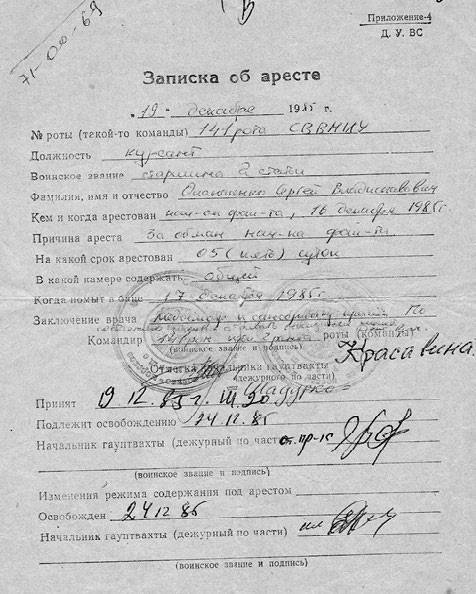 71-00-69
Приложение-4
Д. У. ВС
Записка об аресте
"19" декабря 1985 г.
№ роты (такой-то команды) 141 рота СВВМИУ
Должность курсант
Воинское звание старшина 2 статьи
Фамилия, имя и отчество Сергей Владиславович
Кем и когда арестован нач-ом фак-та, 16 декабря 1985г
Причина ареста За обман нач-ка фак-та
На какой срок арестован 05 (пять) суток
В какой камере содержать общей
Когда помыт в бане 17 декабря 1985г
Заключение врача По
состоянию
Командир роты (команды)
(воинское звание и подпись)
Красавина
Отметка начальника гауптвахты
(дежурного по части)
Принят 19 12. 85 г.
Подлежит освобождению 24 12. 85
Начальник гауптвахты (дежурный по части) ст. пр-к
(воинское звание и подпись)
Изменения режима содержания под арестом
Освобожден 24 12 85
Начальник гауптвахты (дежурный по части)
(воинское звание и подпись)